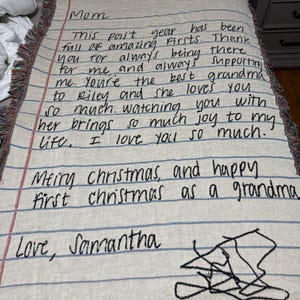 Mom
This past year has been
full of amazing firsts. Thank
you for always being there
for me and always supporting
me. You're the best grandma
to Riley and she loves you
so much. Watching you with
her brings so much joy to my
life. I love you so much.
Merry christmas and happy
first christmas as a grandma
Love, Samantha